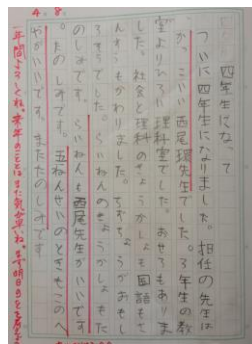 4.8.
四年生になって
ついに四年生になりました。担任の先生は
かっこいい西尾環先生でした。3年生の教
室よりひろい理科室でした。おせきもありま
した。社会と理科のきょうかしょも国語もさ
んすうもかわりました。ちずちょうがおもし
ろそうでした。らいねんのきょうかしょもた
のしみです。らいねんも西尾先生がいいです
。たのしみです。五ねんせいのときもこのへ
やがいいです。またたのしみです
一年間よろしくね。来年のことはまだ気が早いね。まず明日から